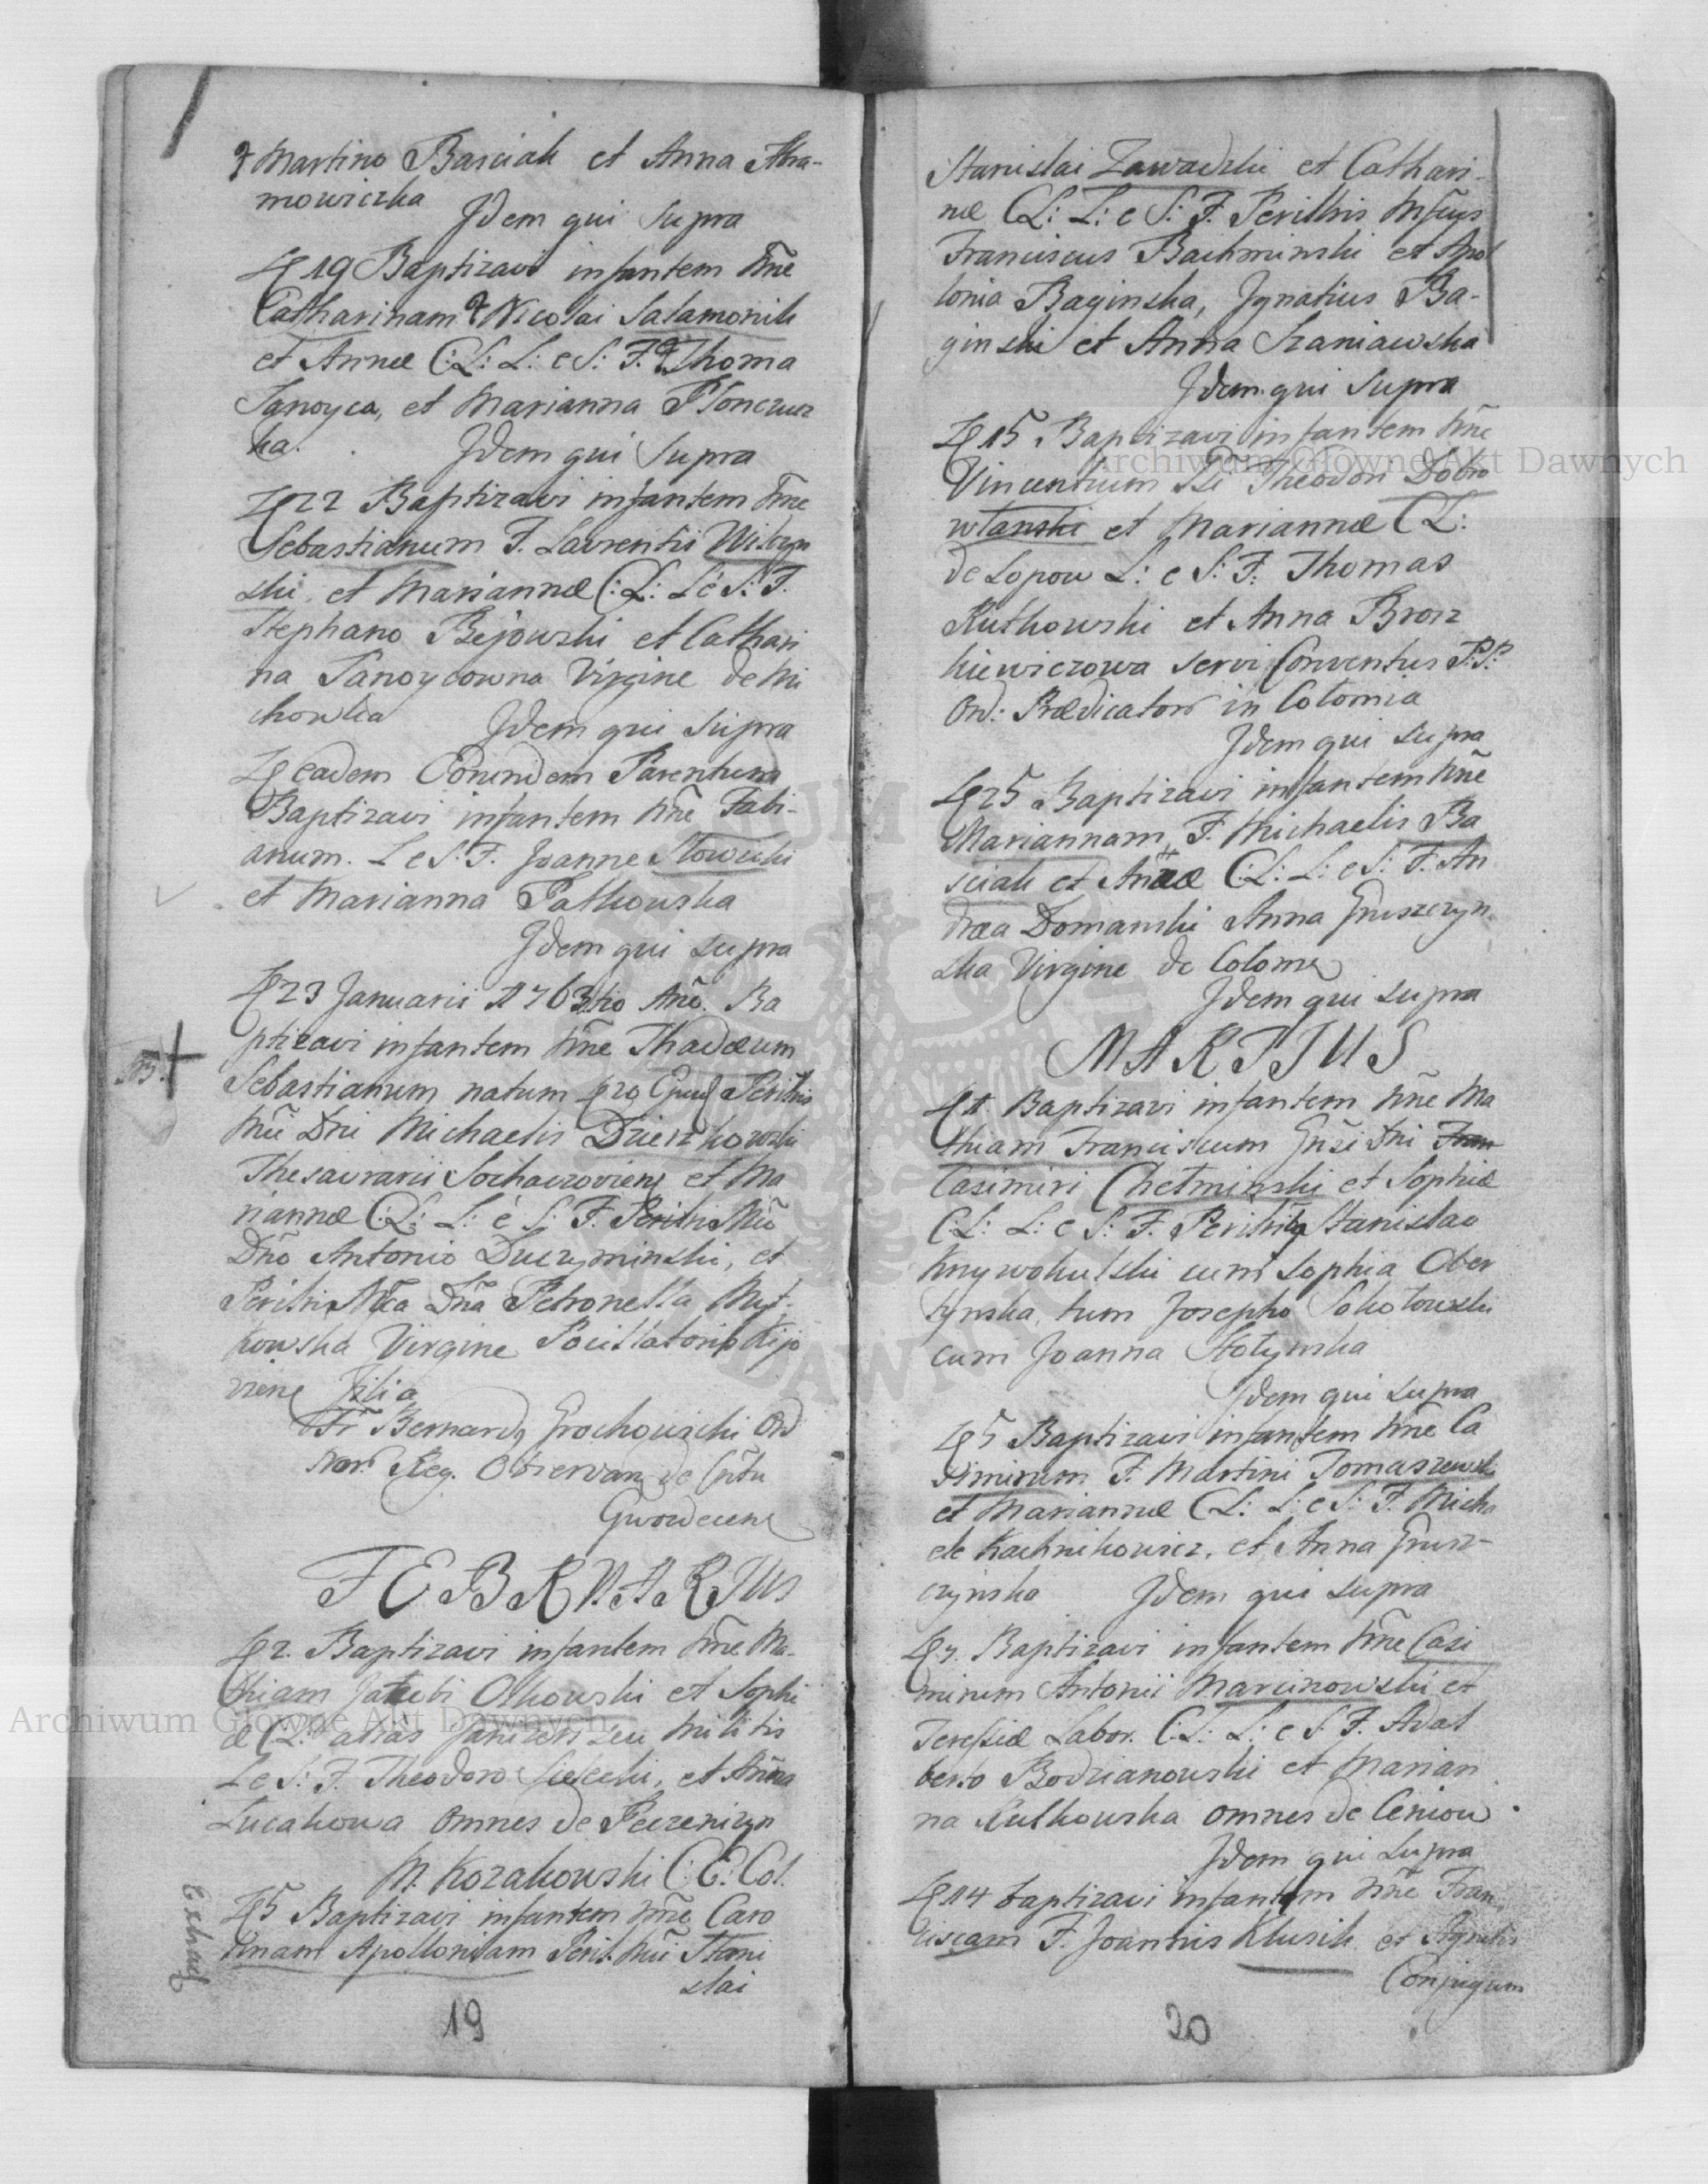 Martino Basciak et Anna Abra-
mowiczka
Jdem qui Supra
19 Baptizavi infantem nne
Catharinam Nicolai Salamonik
et Annæ C:L: L: e S: F. Thoma
Sanoyca, et Marianna Płonczuz
ka.
Jdem qui Supra
22 Baptizavi infantem nne
Sebastianum F. Laurentii
ski et Mariannæ C:L: L e S: F.
Stephano et Cathari
na Sanoycowna Virgine de Mi
chowka
Jdem qui Supra
eadem Eorundem Parentum
Baptizavi infantem nne Fabi-
anum. L e S: F. Joanne Słowicki
et Marianna Patkowska
Jdem qui Supra
23 Januarii 1763tio Ano. Ba
ptizavi infantem nne Thadæum
NB. Sebastianum natum 20 Perillris
Dni Michaelis Dzierzkowski
Thesaurarii Sochaczoviens et Ma
riannæ C:L: L: e S: F. Perillri
Dno Antonio Duczyminski, et
Perillri Dna Petronella
kowska Virgine Pocillatoris Kijo
viens filia
Fr Bernard Grochowski Ord
Min. Reg. Observan de
Gwozdecens
FEBRUARIUS
2. Baptizavi infantem nne Ma-
thiam Jacobi Olkowski et Sophi
æ C:L: alias seu militis
L e S: F. Theodoro et Anna
Lucakowa omnes de Peczeniżyn
M. Kozakowski C: E: Col.
5 Baptizavi infantem nne Caro
linam Apolloniam Peril. Stani
slai
19
Stanislai Zawadzki et Cathari-
næ C:L: L: e S: F. Perillris
Franciscus Bachminski et Apo
lonia Baginska, Jgnatius Ba-
ginski et Anna Szaniawska
Jdem qui Supra
15 Baptizavi infantem nne
Vincentium Theodori Dobro
wlanski et Mariannæ C:L:
de Sopow L: e S: F: Thomas
Rutkowski et Anna Brosz
kiewiczowa servi Conventus P:P:
Ord: Prædicator in Colomia
Jdem qui Supra
25 Baptizavi infantem nne
Mariannam, F. Michaelis Ba
sciak et Annæ C:L: L: e S: F. An
dræa Domanski Anna Gruszczyn
ska Virgine de Colomea
Jdem qui Supra
MARTIUS
1. Baptizavi infantem nne Ma
thiam Franciscum Gnsi Dni Fran
Casimiri Chełminski et Sophiæ
C:L: L: e S: F. Stanislao
Krzywokulski cum Sophia Ober
tynska, tum Josepho Sokołowski
cum Joanna Hołynska
Jdem qui Supra
5 Baptizavi infantem nne Ca
simirum F. Martini Tomaszewski
et Mariannæ C:L: L: e S: F. Micha
ele Kachnikowicz, et Anna Grusz-
czynska
Jdem qui Supra
Baptizavi infantem nne Casi
mirum Antonii Marcinowski et
Teressiæ Labor. C:L: L: e S: F. Adal
berto Bodzianowski et Marian
na Rutkowska omnes de Ceniow
Jdem qui Supra
14 baptizavi infantem nne Fran
ciscam F. Joannis Klusik et Agnetis
Conjugum
20